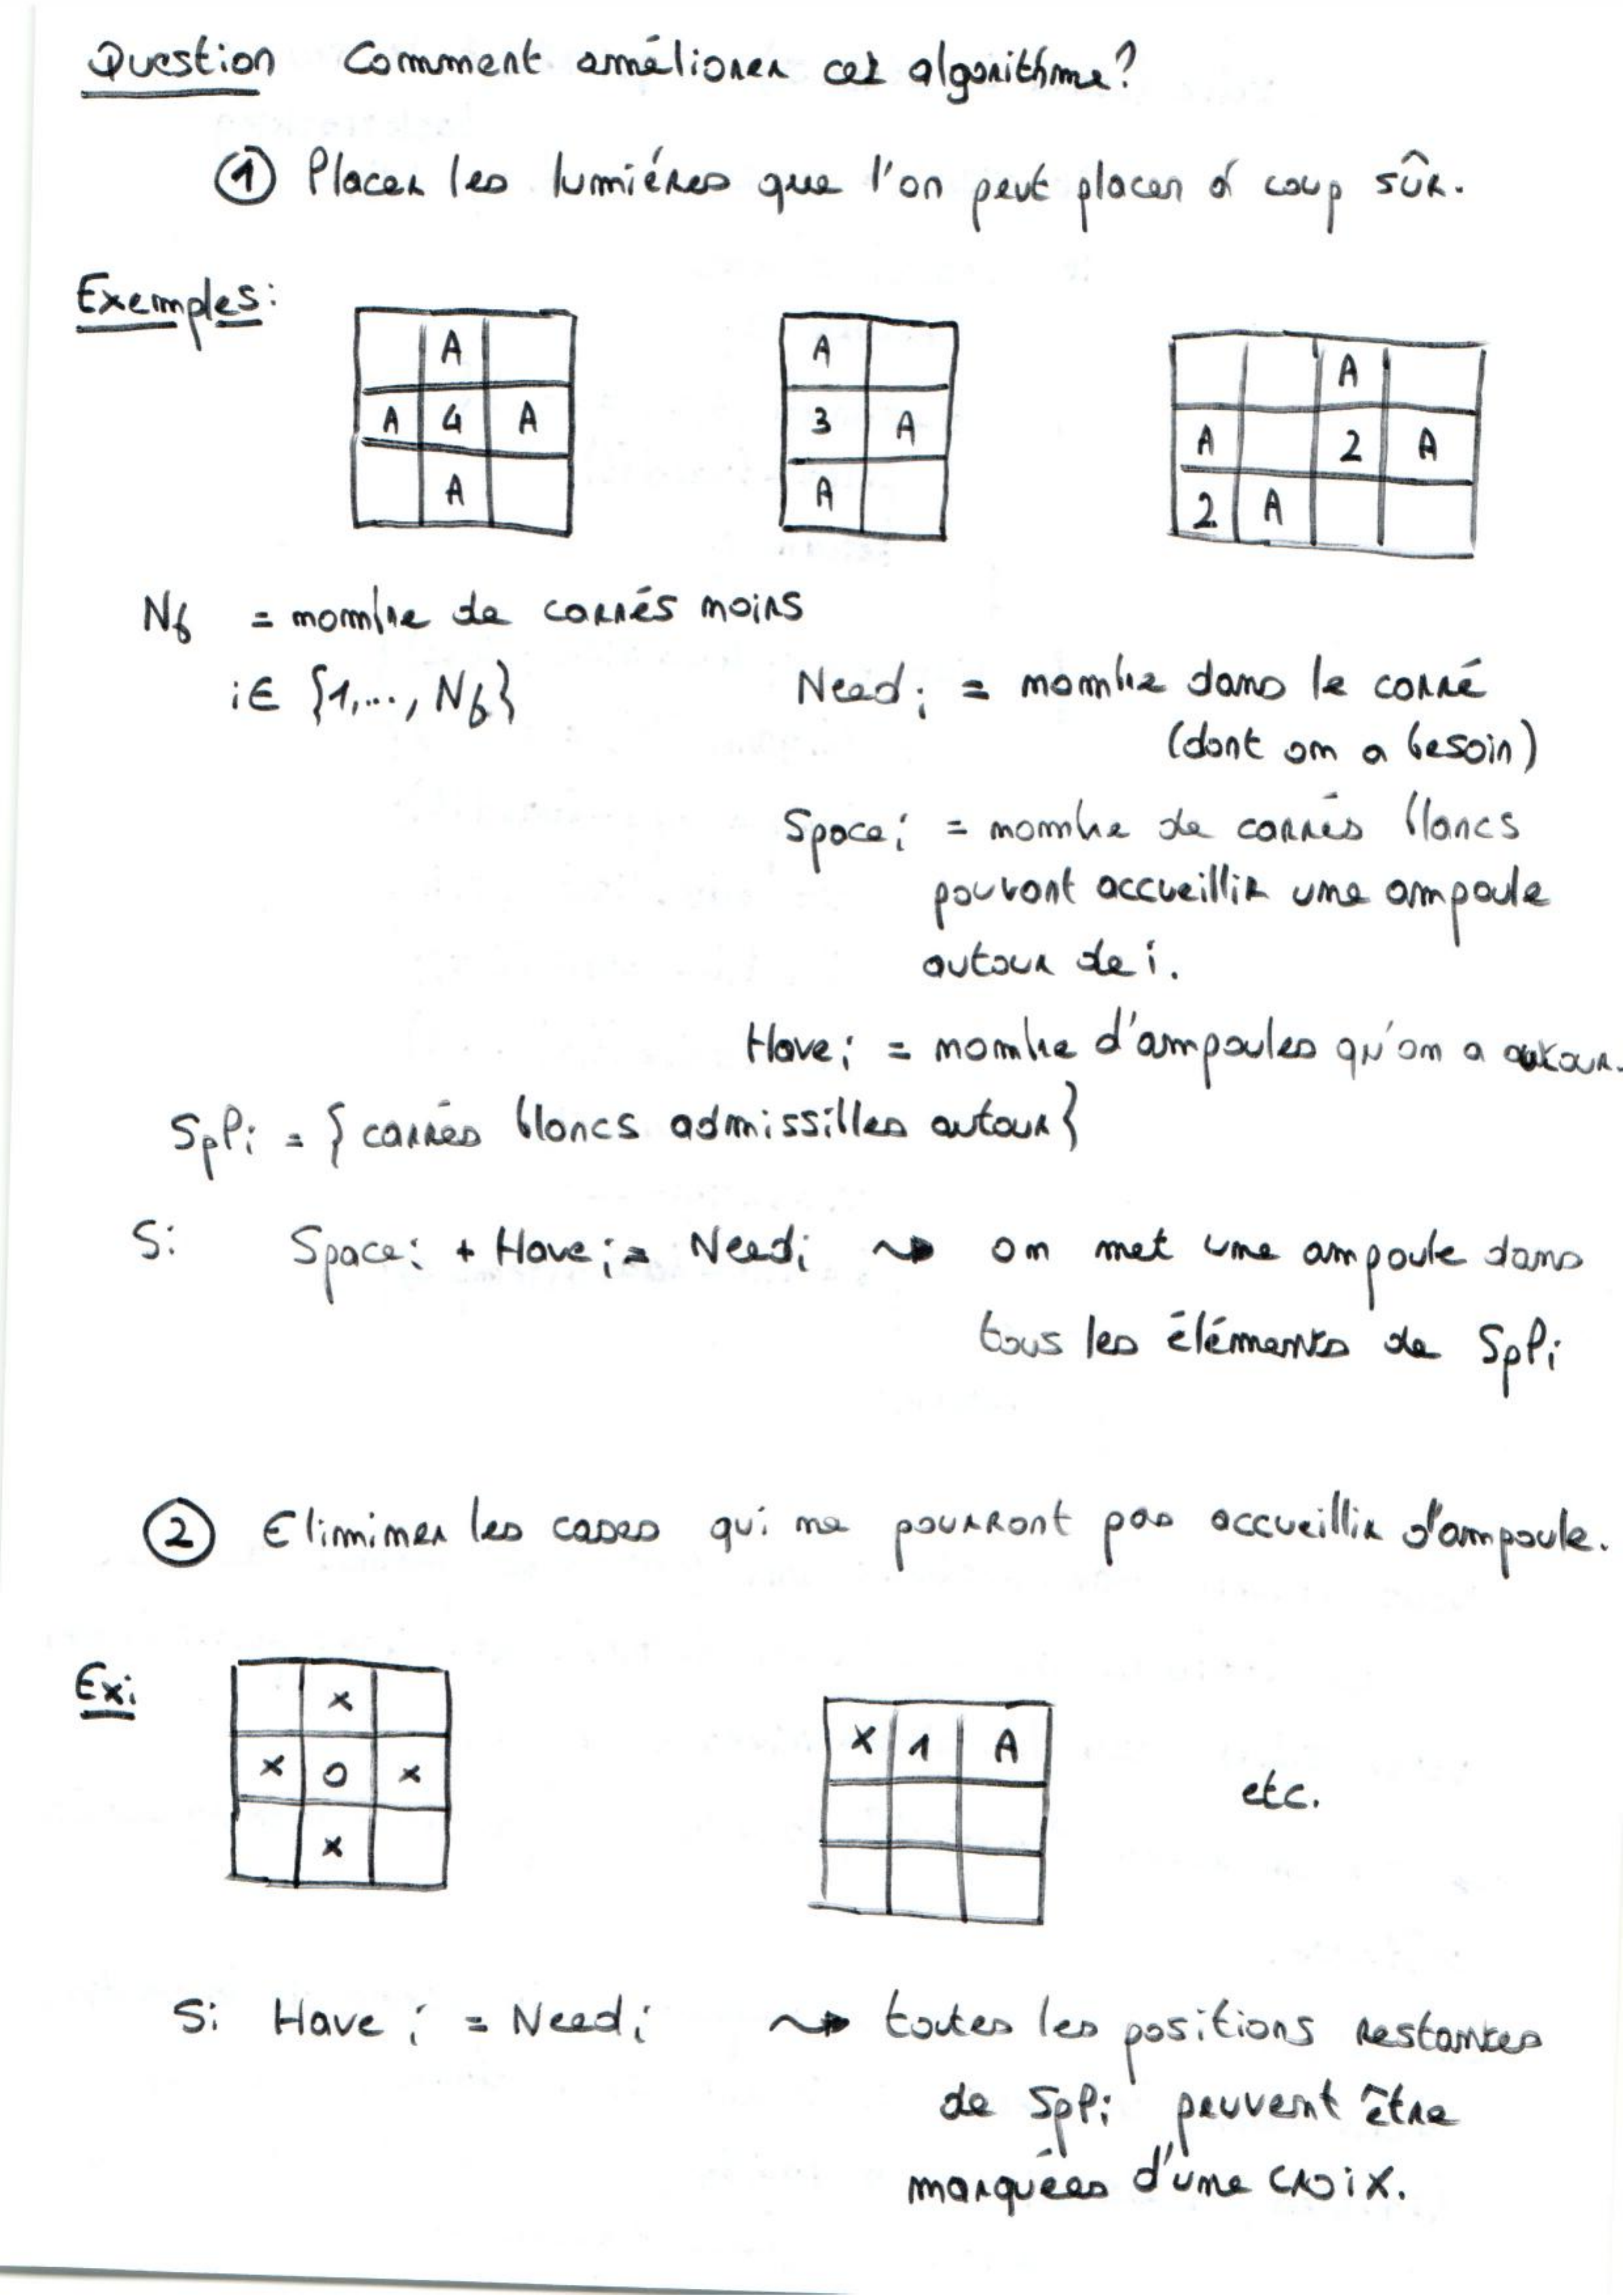 Question Comment améliorer cet algorithme?
① Placer les lumiéres que l'on peut placer à coup sûr.
Exemples:
A
A 4 A
A
A
3 A
A
A
A 2 A
2 A
Nb = nombre de carrés noirs
i ∈ {1,..., Nb}
Need i = nombre dans le carré
(dont on a besoin)
Space i = nombre de carrés blancs
pouvant accueillir une ampoule
autour de i.
Have i = nombre d'ampoules qu'on a autour.
SpPi = {carrés blancs admissibles autour}
Si Space i + Have i = Need i ⇝ on met une ampoule dans
tous les éléments de SpPi
② Eliminer les cases qui ne pourront pas accueillir d'ampoule.
Ex:
x
x 0 x
x
X 1 A
etc.
Si Have i = Need i ⇝ toutes les positions restantes
de SpPi peuvent être
marquées d'une croix.